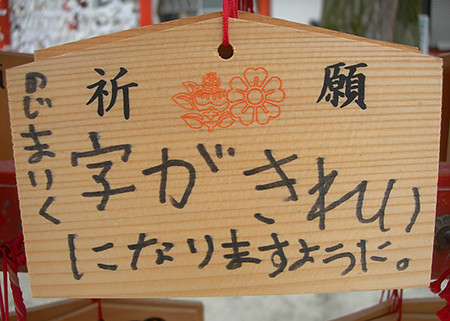 祈願
字がきれい
になりますように。
のじまりく